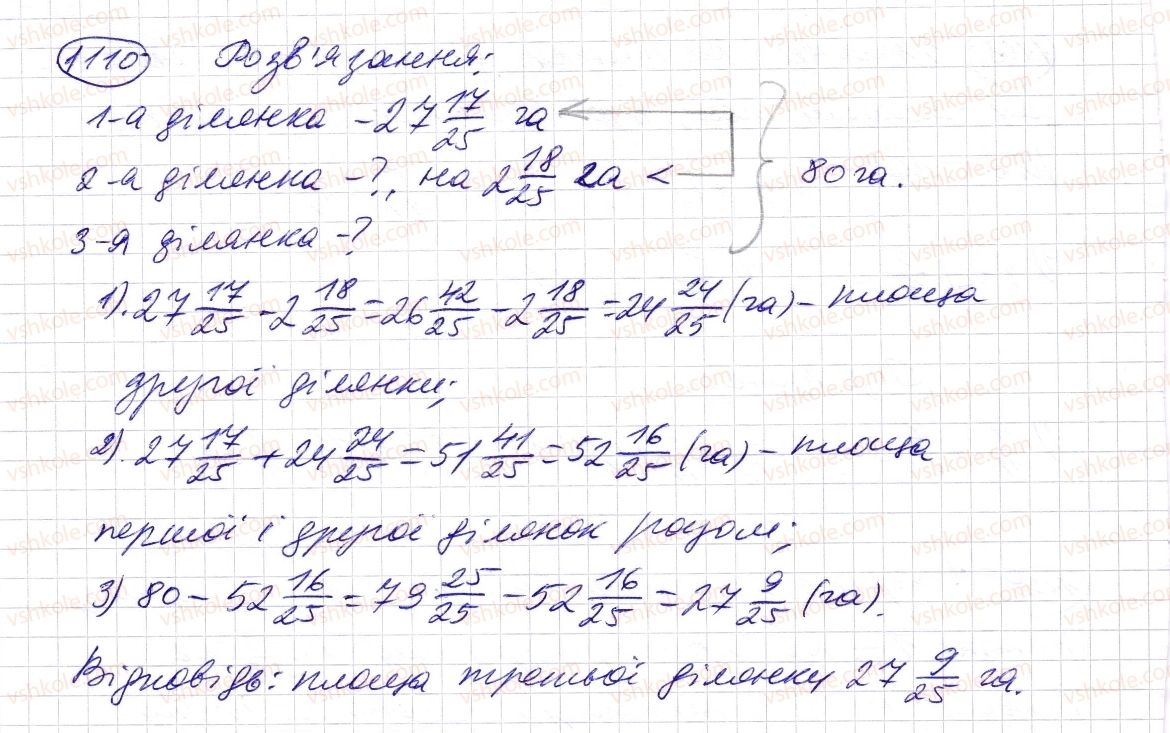 1110 Розв'язання:
1-а ділянка - 27 17/25 га
2-а ділянка - ?, на 2 18/25 га < 80 га.
3-я ділянка - ?
1). 27 17/25 - 2 18/25 = 26 42/25 - 2 18/25 = 24 24/25 (га) - площа
другої ділянки;
2). 27 17/25 + 24 24/25 = 51 41/25 = 52 16/25 (га) - площа
першої і другої ділянок разом;
3) 80 - 52 16/25 = 79 25/25 - 52 16/25 = 27 9/25 (га).
Відповідь: площа третьої ділянки 27 9/25 га.